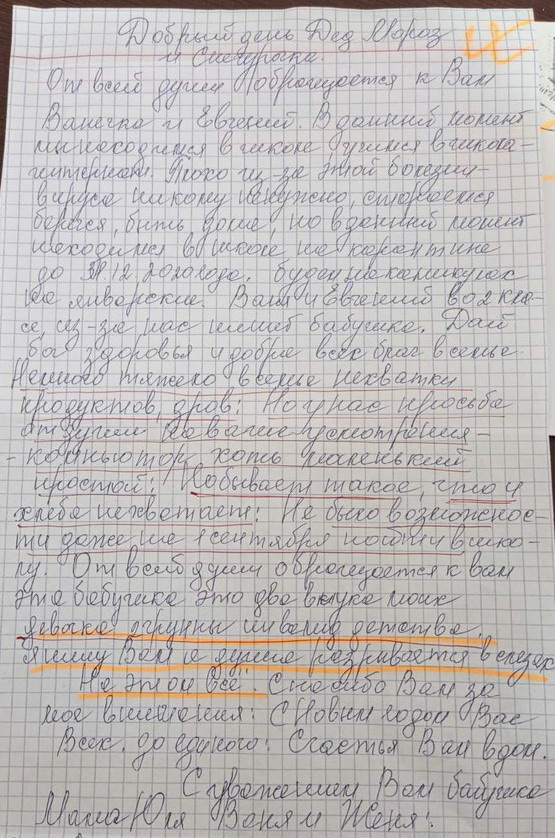 Добрый день Дед Мороз
и Снегурочка.
От всей души оброщается к Вам
Ванечка и Евгений. В данный момент
мы находимся в школе учимся в школа-
интернат. Плохо из-за этой болезни-
вируса никому ненужно, стораемся
берегся, быть дома, но вданный момент
находимся в школе на карантине
до 31.12.2020 года. будем на каникулах
на январские. Ваня и Евгений во 2 кла-
се, из-за нас пишит бабушка. Дай
бог здоровья и добра всех благ в семье.
Немного тяжело в семье нехватки
продуктов, дров: Но у нас просьба
от души на ваше усмотрения-
- компьютор хоть маленький
простой: Но бывает такое, что и
хлеба нехватает: Не было возможнос-
ти даже на 1 сентября пойти в шко-
лу. От всей души оброщается к вам
эта бабушка это два внука моих
девочка огруппы инвалид детства,
я пишу Вам а душа разрывается в слезах
На этом всё. Спасибо Вам за
мое внимания: С Новым годом Вас
Всех. до единого: Счастья Вам в дом.
С уважением Вам бабушка
Мама Юля Ваня и Женя: